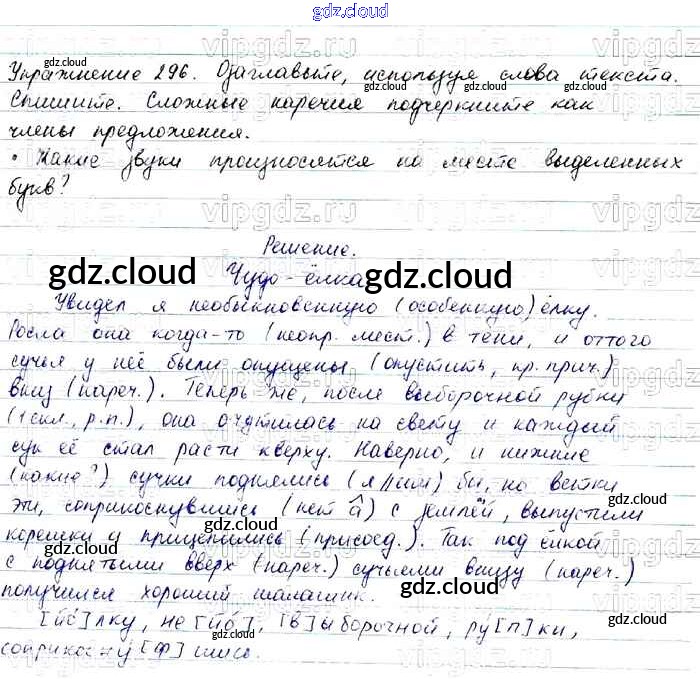 gdz.cloud
Упражнение 296. Озаглавьте, используя слова текста.
Спишите. Сложные наречия подчеркните как
члены предложения.
• Какие звуки произносятся на месте выделенных
букв?
Решение.
Чудо-ёлка
Увидел я необыкновенную (особенную) ёлку.
Росла она когда-то (неопр. мест.) в тени, и оттого
сучья у неё были опущены (опустить, пр. прич.)
вниз (нареч.). Теперь же, после выборочной рубки
(1 скл., р.п.), она очутилась на свету и каждый
сук её стал расти кверху. Наверно, и нижние
(какие?) сучки поднялись (я//им) бы, но ветки
эти, соприкоснувшись (нет â) с землёй, выпустили
корешки и прицепились (присоед.). Так под ёлкой
с поднятыми вверх (нареч.) сучьями внизу (нареч.)
получился хороший шалашик.
[йо́]лку, не[йо́], [в]ыборочной, ру́[п]ки,
соприкосну́[ф]шись.